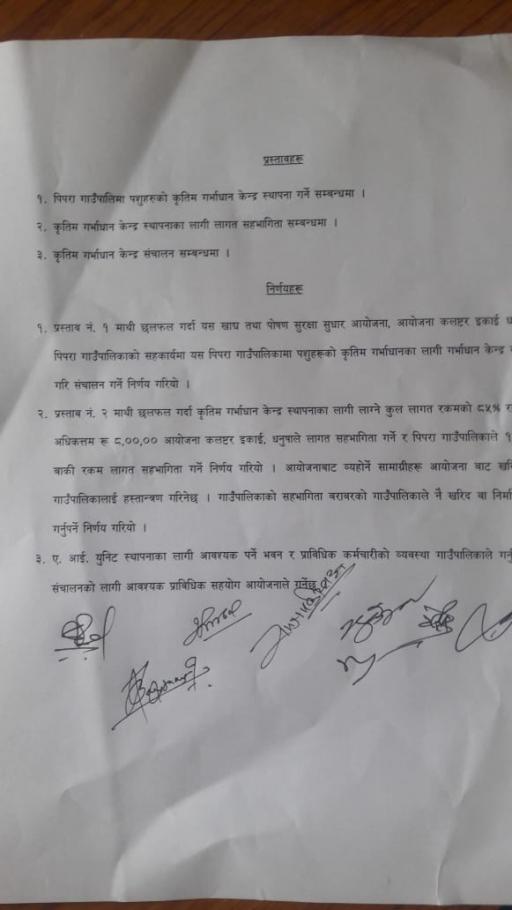 प्रस्तावहरू
१. पिपरा गाउँपालिमा पशुहरुको कृतिम गर्भाधान केन्द्र स्थापना गर्ने सम्बन्धमा ।
२. कृतिम गर्भाधान केन्द्र स्थापनाका लागी लागत सहभागिता सम्बन्धमा ।
३. कृतिम गर्भाधान केन्द्र संचालन सम्बन्धमा ।
निर्णयहरू
१. प्रस्ताव नं. १ माथी छलफल गर्दा यस खाद्य तथा पोषण सुरक्षा सुधार आयोजना, आयोजना कलष्टर इकाई
पिपरा गाउँपालिकाको सहकार्यमा यस पिपरा गाउँपालिकामा पशुहरूको कृतिम गर्भाधानका लागी गर्भाधान केन्द्र
गरि संचालन गर्ने निर्णय गरियो ।
२. प्रस्ताव नं. २ माथी छलफल गर्दा कृतिम गर्भाधान केन्द्र स्थापनाका लागी लाग्ने कुल लागत रकमको ८५%
अधिकत्तम रू ८,००,०० आयोजना कलष्टर इकाई, धनुषाले लागत सहभागिता गर्ने र पिपरा गाउँपालिकाले
बाकी रकम लागत सहभागिता गर्ने निर्णय गरियो । आयोजनाबाट व्यहोर्ने सामाग्रीहरू आयोजना बाट
गाउँपालिकालाई हस्तान्त्रण गरिनेछ । गाउँपालिकाको सहभागिता बराबरको गाउँपालिकाले नै खरिद वा
गर्नुपर्ने निर्णय गरियो ।
३. ए. आई. युनिट स्थापनाका लागी आवश्यक पर्ने भवन र प्राविधिक कर्मचारीको व्यवस्था गाउँपालिकाले
संचालनको लागी आवश्यक प्राविधिक सहयोग आयोजनाले गर्नेछ